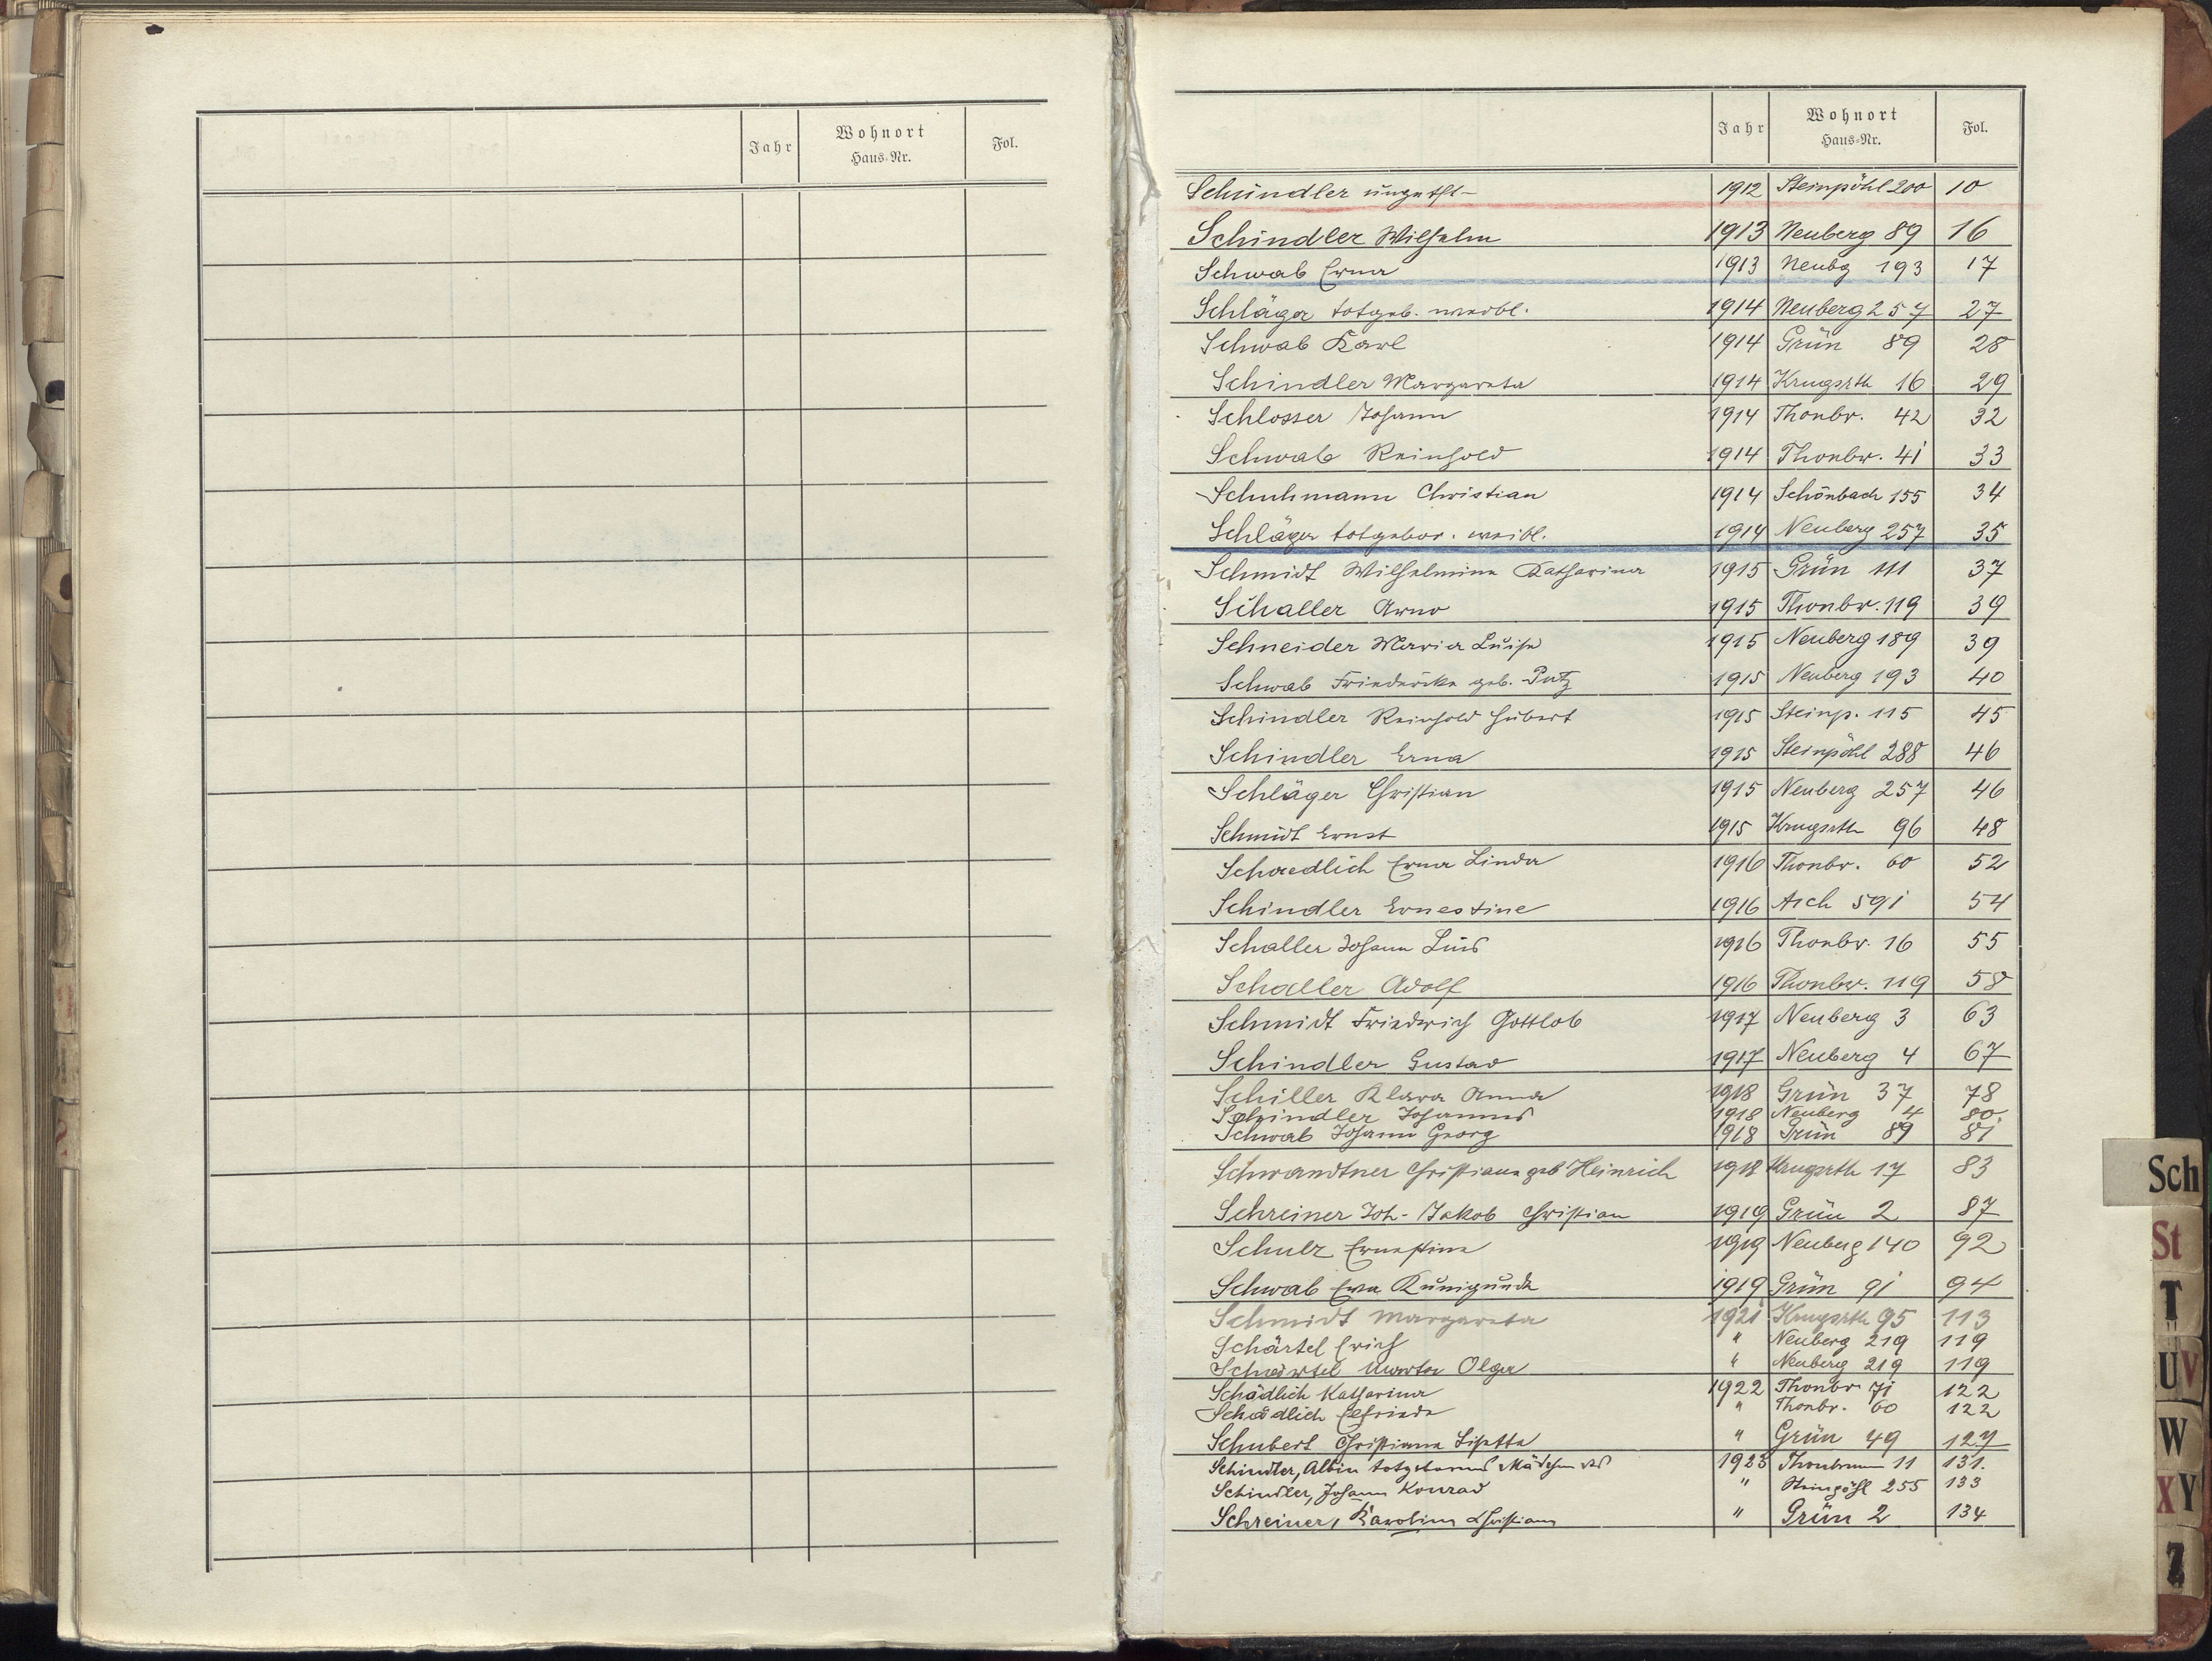 Jahr Wohnort Haus-Nr. Fol.
Jahr Wohnort Haus-Nr. Fol.
Schindler ungetft- 1912 Steinpöhl 200 10
Schindler Wilhelm 1913 Neuberg 89 16
Schwab Erna 1913 Neubg 193 17
Schläger totgeb. weibl. 1914 Neuberg 257 27
Schwab Karl 1914 Grün 89 28
Schindler Margareta 1914 Krugsrth 16 29
Schlosser Johann 1914 Thonbr. 42 32
Schwab Reinhold 1914 Thonbr. 41 33
Schuhmann Christian 1914 Schönbach 155 34
Schläger totgebor. weibl. 1914 Neuberg 257 35
Schmidt Wilhelmine Katharina 1915 Grün 111 37
Schaller Arno 1915 Thonbr. 119 39
Schneider Maria Luise 1915 Neuberg 189 39
Schwab Friedericke geb. Putz 1915 Neuberg 193 40
Schindler Reinhold Hubert 1915 Steinp. 115 45
Schindler Erna 1915 Steinpöhl 288 46
Schläger Christian 1915 Neuberg 257 46
Schmidt Ernst 1915 Krugsrth 96 48
Schaedlich Erna Linda 1916 Thonbr. 60 52
Schindler Ernestine 1916 Asch 591 54
Schaller Johann Luis 1916 Thonbr. 16 55
Schaller Adolf 1916 Thonbr. 119 58
Schmidt Friedrich Gottlob 1917 Neuberg 3 63
Schindler Gustav 1917 Neuberg 4 67
Schiller Klara Anna 1918 Grün 37 78
Schindler Johannes 1918 Neuberg 4 80.
Schwab Johann Georg 1918 Grün 89 81
Schwandtner Christiana geb Heinrich 1918 Krugsrth 17 83
Schreiner Joh- Jakob Christian 1919 Grün 2 87
Schulz Ernestine 1919 Neuberg 140 92
Schwab Eva Kunigunde 1919 Grün 91 94
Schmidt Margareta 1921 Krugsrth 95 113
Schärtel Erich " Neuberg 219 119
Schärtel Olga " Neuberg 219 119
Schädlich Katharina 1922 Thonbr 71 122
Schädlich Elfriede " Thonbr. 60 122
Schubert Christiana Lisette " Grün 49 127
Schindler, Albin totgeborenes Mädchen des 1923 Thonbrunn 11 131.
Schindler, Johann Konrad " Steinpöhl 255 133
Schreiner, Karolina Christiana " Grün 2 134
Sch
St
T
U V
W
X Y
Z